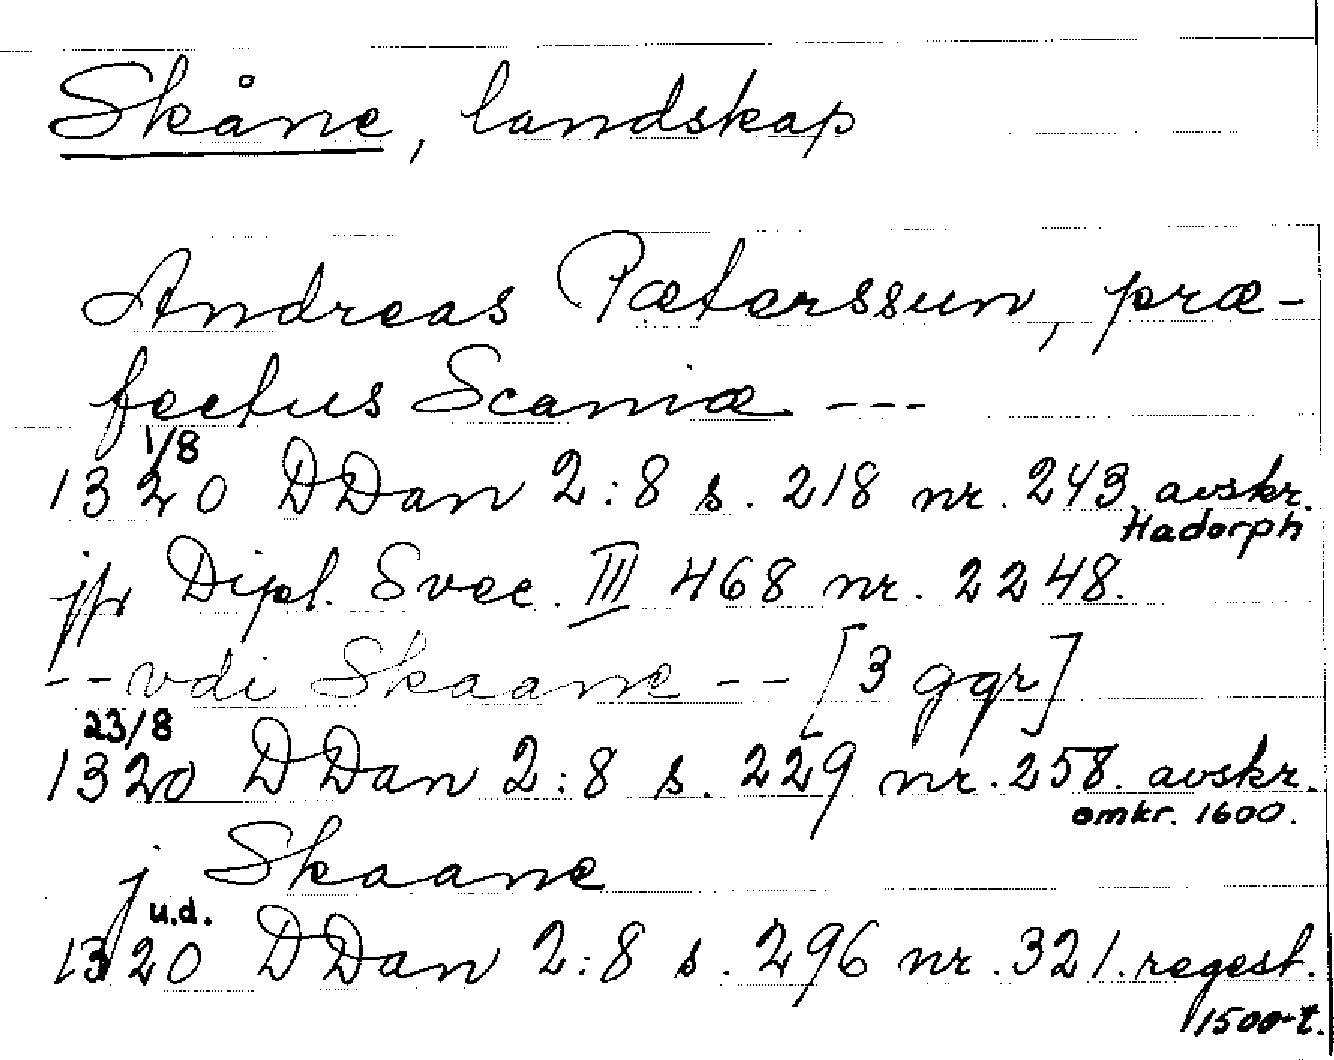 Skåne, landskap
Andreas Pæterssun, præ-
fectus Scaniæ ---
1/8
1320 DDan 2:8 s. 218 nr. 243. avskr.
Hadorph
jfr Dipl. Svec. III 468 nr. 2248.
-- vdi Skaane -- [3 ggr]
23/8
1320 DDan 2:8 s. 229 nr. 258. avskr.
omkr. 1600.
j Skaane
u.d.
1320 DDan 2:8 s. 296 nr. 321. regest.
1500-t.